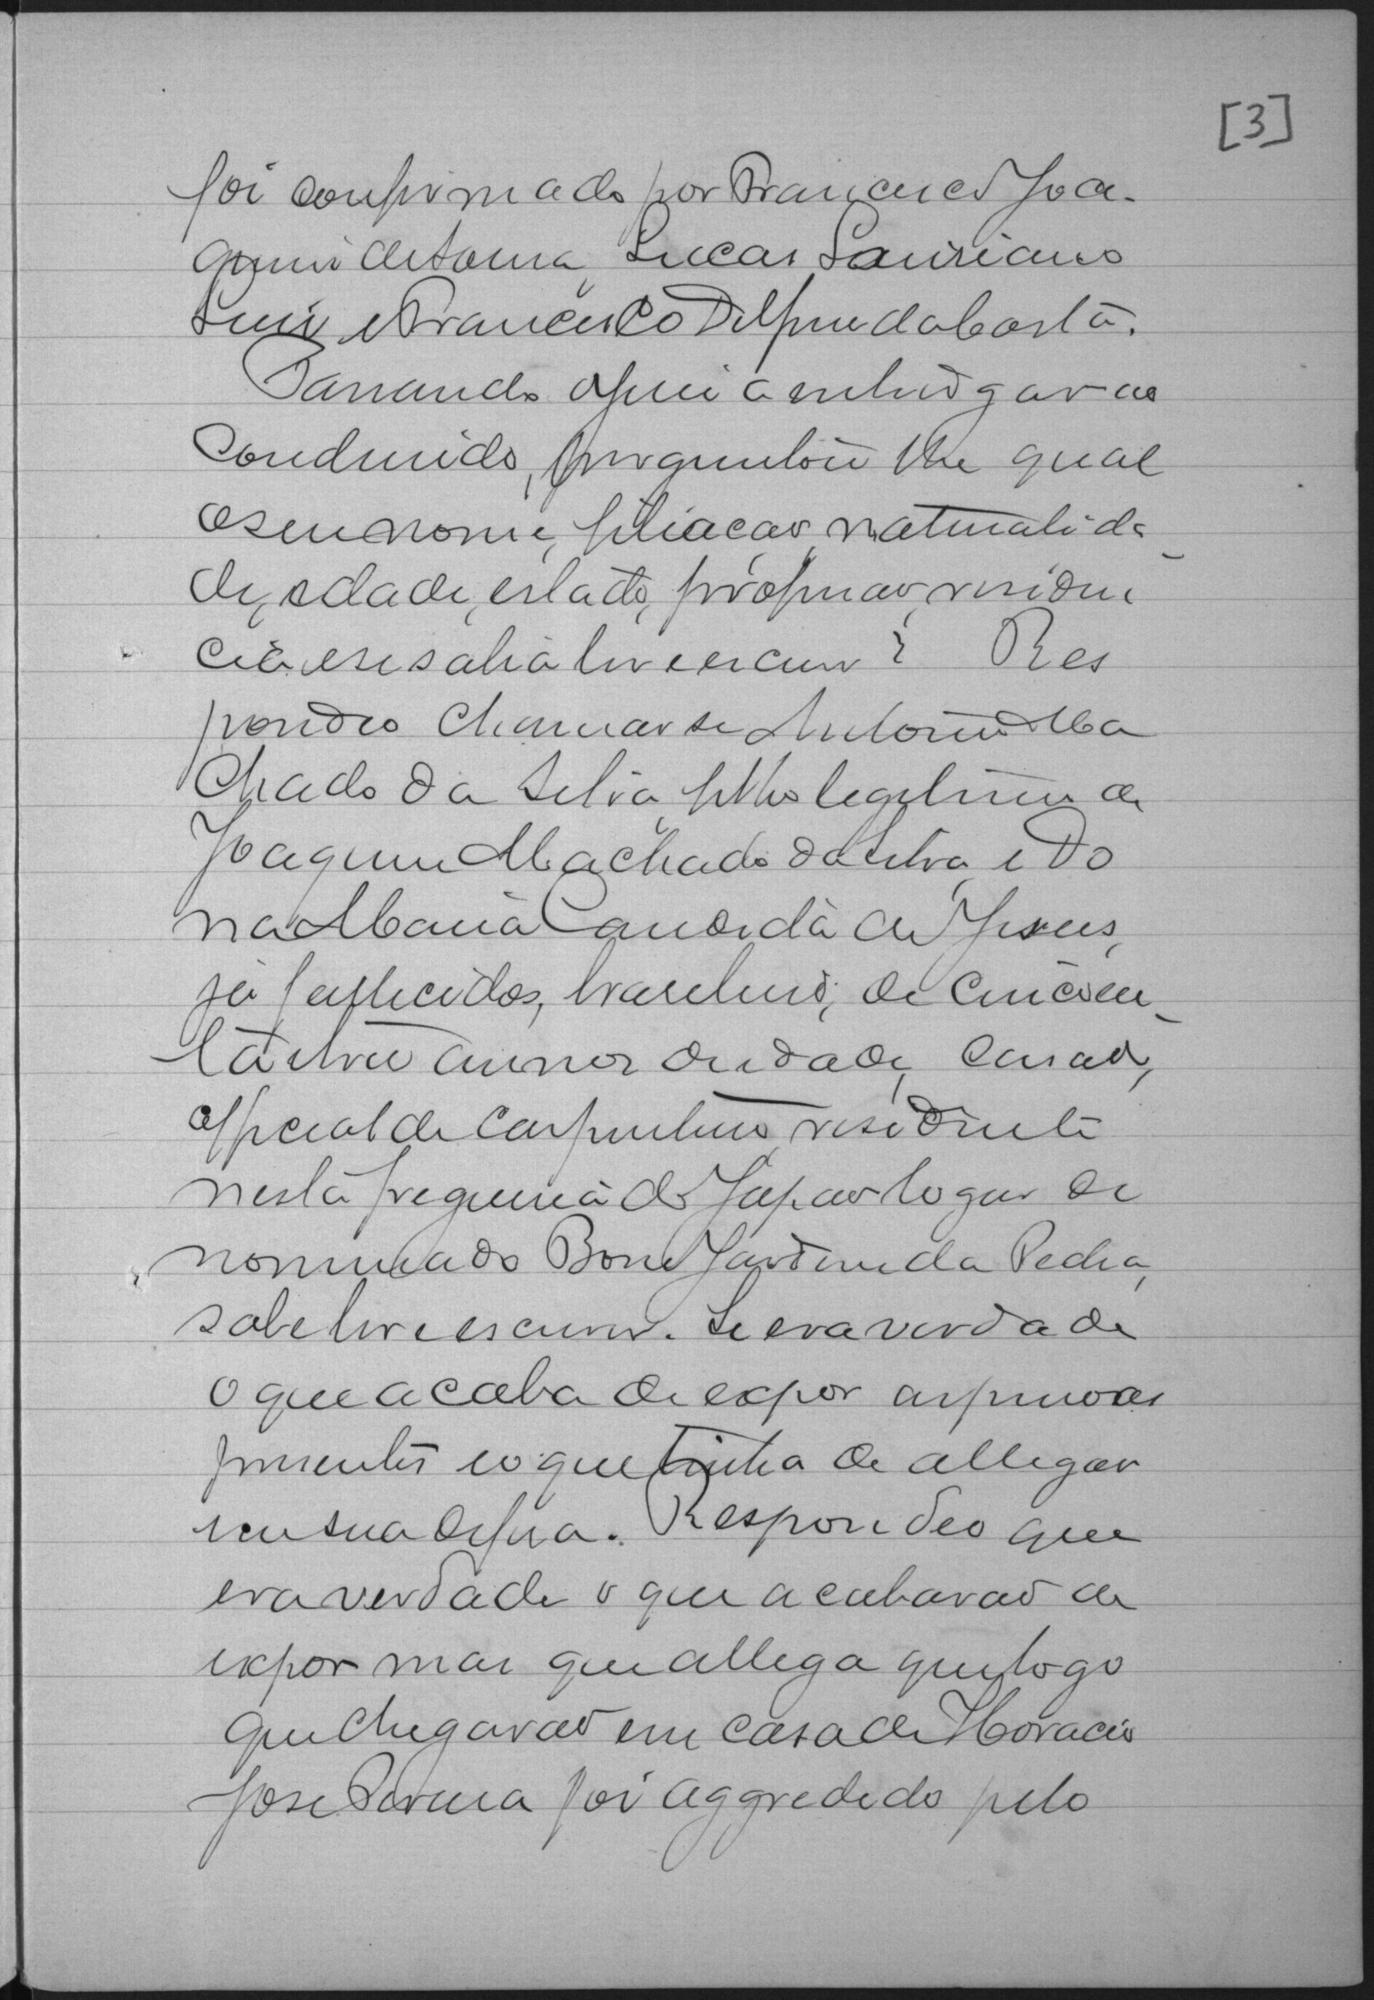 [3]
foi confirmado por Francisco Joa-
quim de Souza, Lucas Lauriano
Luiz e Francisco Delfino da Costa.
Passando aqui a interrogar ao
conduzido, perguntou lhe qual
o seu nome, filiacao, naturalida-
de, edade, estado, profissao, residen
cia e se sabia ler e escrever? Res
pondeo chamar se Antonio Ma
chado da Silva, filho legitimo de
Joaquim Machado da Silva e Do
na Maria Candida de Jesus,
já fallecidos, brasileiro, de cincoen-
ta e tres annos de edade, casado,
official de carpinteiro, residente
nesta freguezia do Japao logar de
nominado Bom Jardim da Pedra,
sabe ler e escrever. Se era verdade
o que acaba de expor as pessoas
presentes e o que tinha de allegar
em sua defesa. Respondeo que
era verdade o que acabavao de
expor mas que allega que logo
que chegavao em casa de Horacio
Jose Pereira foi aggredido pelo